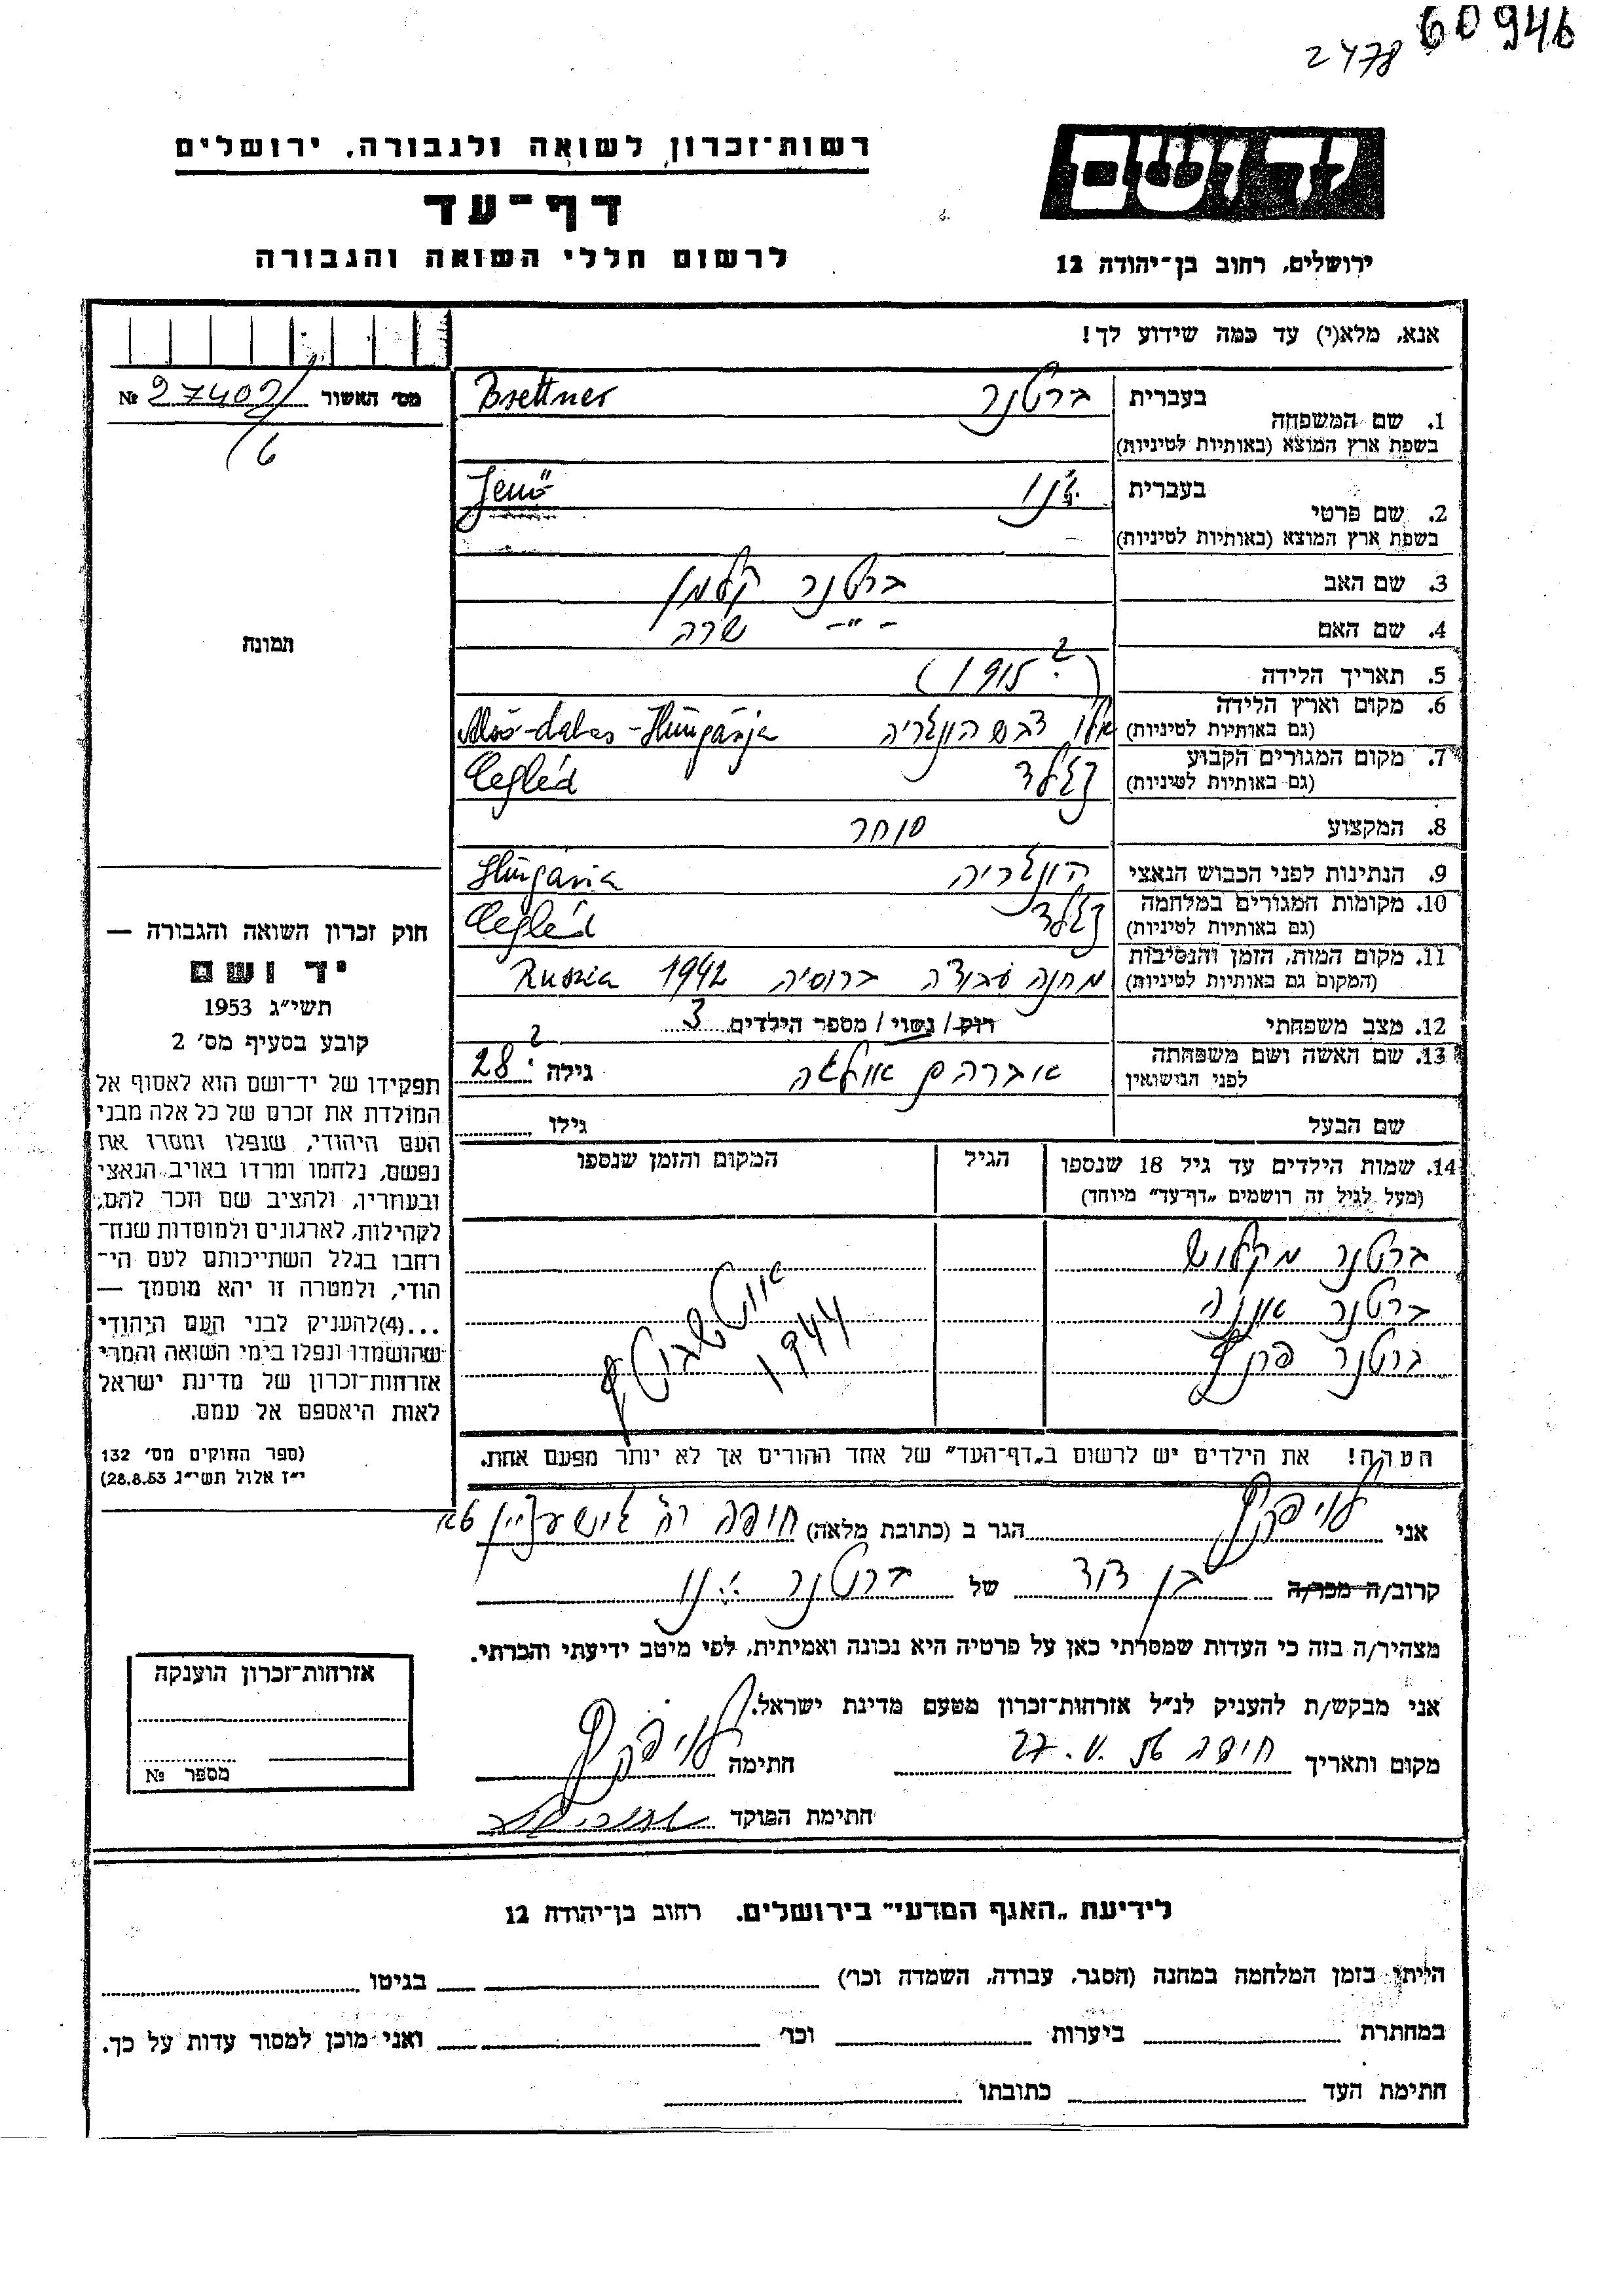 60946
2478
רשות־זכרון לשואה ולגבורה, ירושלים
דף־עד
לרשום חללי השואה והגבורה
יד ושם
ירושלים, רחוב בן־יהודה 12
אנא, מלא(י) עד כמה שידוע לך!
מס׳ האשור № 27402
16
תמונה
1. שם המשפחה בעברית ברטנר Brettner
בשפת ארץ המוצא (באותיות לטיניות)
2. שם פרטי בעברית ינו Jenő
בשפת ארץ המוצא (באותיות לטיניות)
3. שם האב ברטנר קלמן
4. שם האם -"- שרה
5. תאריך הלידה (1915 ?)
6. מקום וארץ הלידה דבש הונגריה Alsó-dabas - Hungária
(גם באותיות לטיניות)
7. מקום המגורים הקבוע צגלד Cegléd
(גם באותיות לטיניות)
8. המקצוע סוחר
9. הנתינות לפני הכבוש הנאצי הונגריה Hungária
10. מקומות המגורים במלחמה צגלד Cegléd
(גם באותיות לטיניות)
11. מקום המות, הזמן והנסיבות מחנה עבודה ברוסיה 1942 Russia
(המקום גם באותיות לטיניות)
12. מצב משפחתי רוק / נשוי / מספר הילדים 3
13. שם האשה ושם משפחתה אברהם אולגה גילה 28 ?
לפני הנישואין
שם הבעל גילו
14. שמות הילדים עד גיל 18 שנספו הגיל המקום והזמן שנספו
(מעל לגיל זה רושמים „דף־עד” מיוחד)
ברטנר מקלוש
ברטנר אונה
ברטנר
אוישביץ
1944
הערה! את הילדים יש לרשום ב„דף־העד” של אחד ההורים אך לא יותר מפעם אחת.
חוק זכרון השואה והגבורה —
יד ושם
תשי״ג 1953
קובע בסעיף מס׳ 2
תפקידו של יד־ושם הוא לאסוף אל
המולדת את זכרם של כל אלה מבני
העם היהודי, שנפלו ומסרו את
נפשם, נלחמו ומרדו באויב הנאצי
ובעוזריו, ולהציב שם וזכר להם,
לקהילות, לארגונים ולמוסדות שנח־
רבו בגלל השתייכותם לעם הי־
הודי, ולמטרה זו יהא מוסמך —
...(4) להעניק לבני העם היהודי
שהושמדו ונפלו בימי השואה והמרי
אזרחות־זכרון של מדינת ישראל
לאות היאספם אל עמם.
(ספר החוקים מס׳ 132
י״ז אלול תשי״ג 28.8.53)
אני הגר ב (כתובת מלאה) חיפה רח׳
קרוב/ה מכר/ה בן דוד של ברטנר ינו
מצהיר/ה בזה כי העדות שמסרתי כאן על פרטיה היא נכונה ואמיתית, לפי מיטב ידיעתי והכרתי.
אני מבקש/ת להעניק לנ״ל אזרחות־זכרון מטעם מדינת ישראל.
מקום ותאריך חיפה 27.V. חתימה
חתימת הפוקד
אזרחות־זכרון הוענקה
מספר №
לידיעת „האגף המדעי” בירושלים, רחוב בן־יהודה 12
הייתי בזמן המלחמה במחנה (הסגר, עבודה, השמדה וכו׳) בגיטו
במחתרת ביערות וכו׳ ואני מוכן למסור עדות על כך.
חתימת העד כתובתו